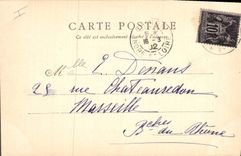 CARTE POSTALE
Ce côté est exclusivement réservé à l'adresse
Mlle E. Denans
25 rue Chateauredon
Marseille
Bches du Rhône